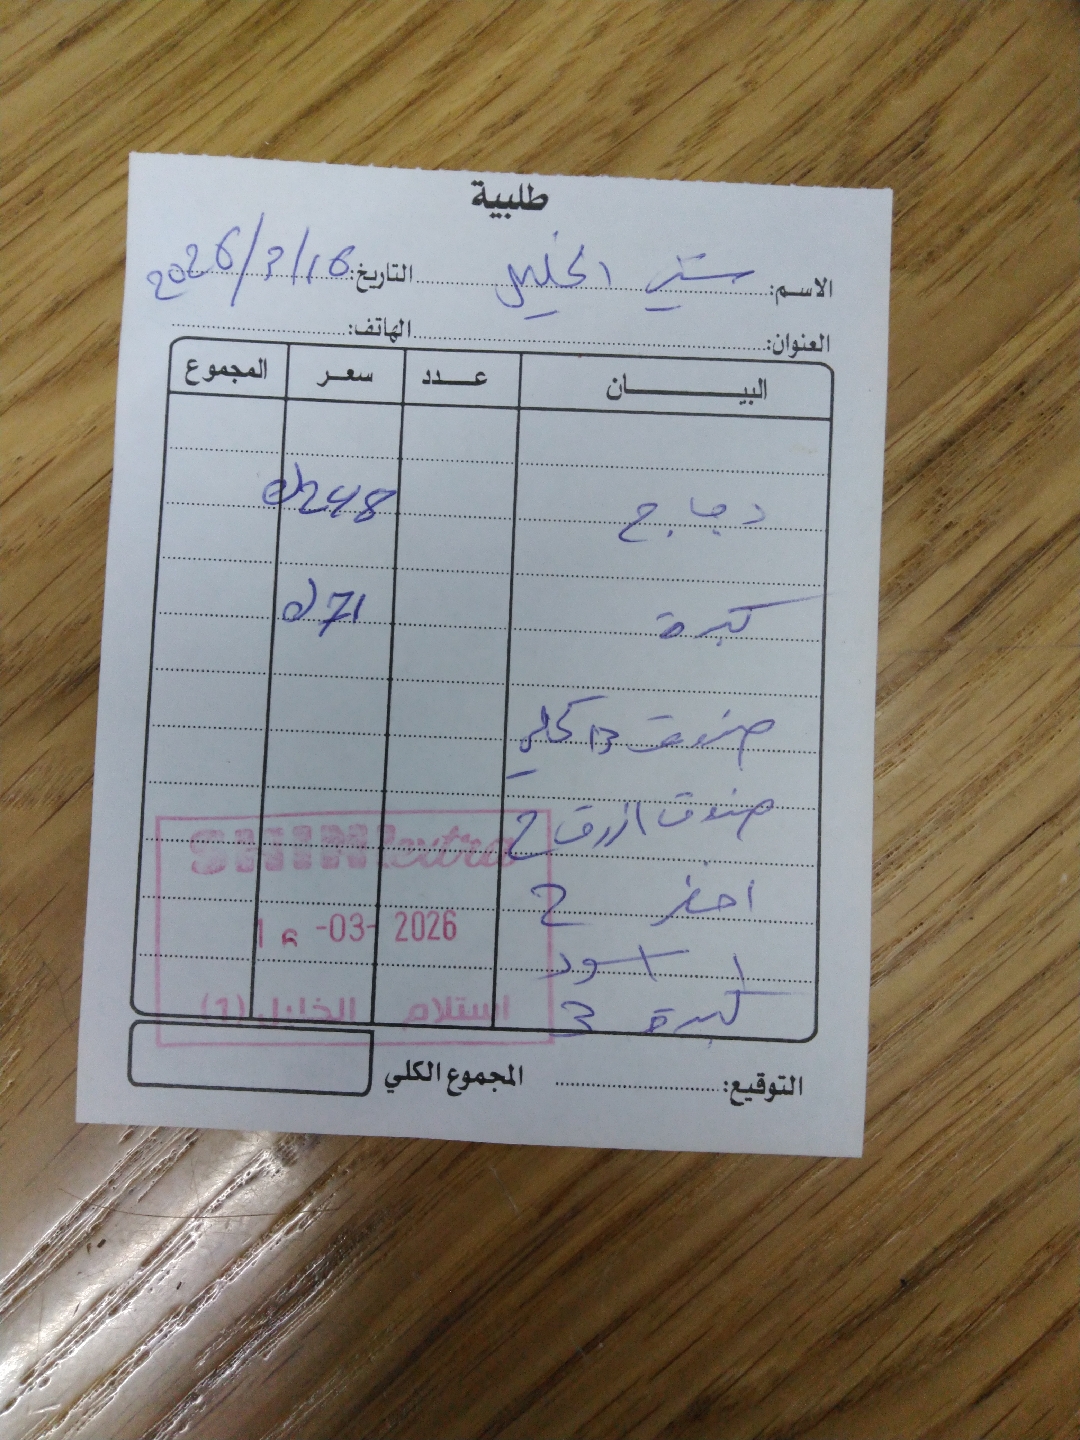 طلبية
الاسم: شني الخليل التاريخ: 2026/3/16
العنوان: الهاتف:
البيــــــان عــدد سعـر المجموع
دجاج 248
كبدة 71
صندوق 13 كحلي
صندوق ازرق 2
اخضر 2
1 اسود
كبدة 3
SHINI extra
16 -03- 2026
استلام الخليل (1)
التوقيع: المجموع الكلي